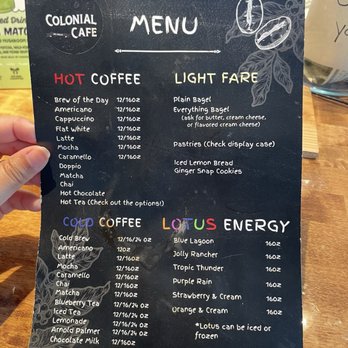 COLONIAL
CAFE
MENU
HOT COFFEE
Brew of the Day 12/16oz
Americano 12/16oz
Cappuccino 12/16oz
Flat White 12/16oz
Latte 12/16oz
Mocha 12/16oz
Caramello 12/16oz
Doppio
Matcha
Chai
Hot Chocolate
Hot Tea (Check out our options!)
LIGHT FARE
Plain Bagel
Everything Bagel
(ask for butter, cream cheese,
or flavored cream cheese)
Pastries (Check display case)
Iced Lemon Bread
Ginger Snap Cookies
COLD COFFEE
Cold Brew 12/16/24 oz
Americano 12oz
Latte 12/16oz
Mocha 12/16oz
Caramello 12/16oz
Chai 12/16oz
Matcha 12/16oz
Blueberry Tea 12/16/24 oz
Iced Tea 12/16/24 oz
Lemonade 12/16/24 oz
Arnold Palmer 12/16/24 oz
Chocolate Milk 12/16oz
LOTUS ENERGY
Blue Lagoon 16oz
Jolly Rancher 16oz
Tropic Thunder 16oz
Purple Rain 16oz
Strawberry & Cream 16oz
Orange & Cream 16oz
*Lotus can be iced or
frozen